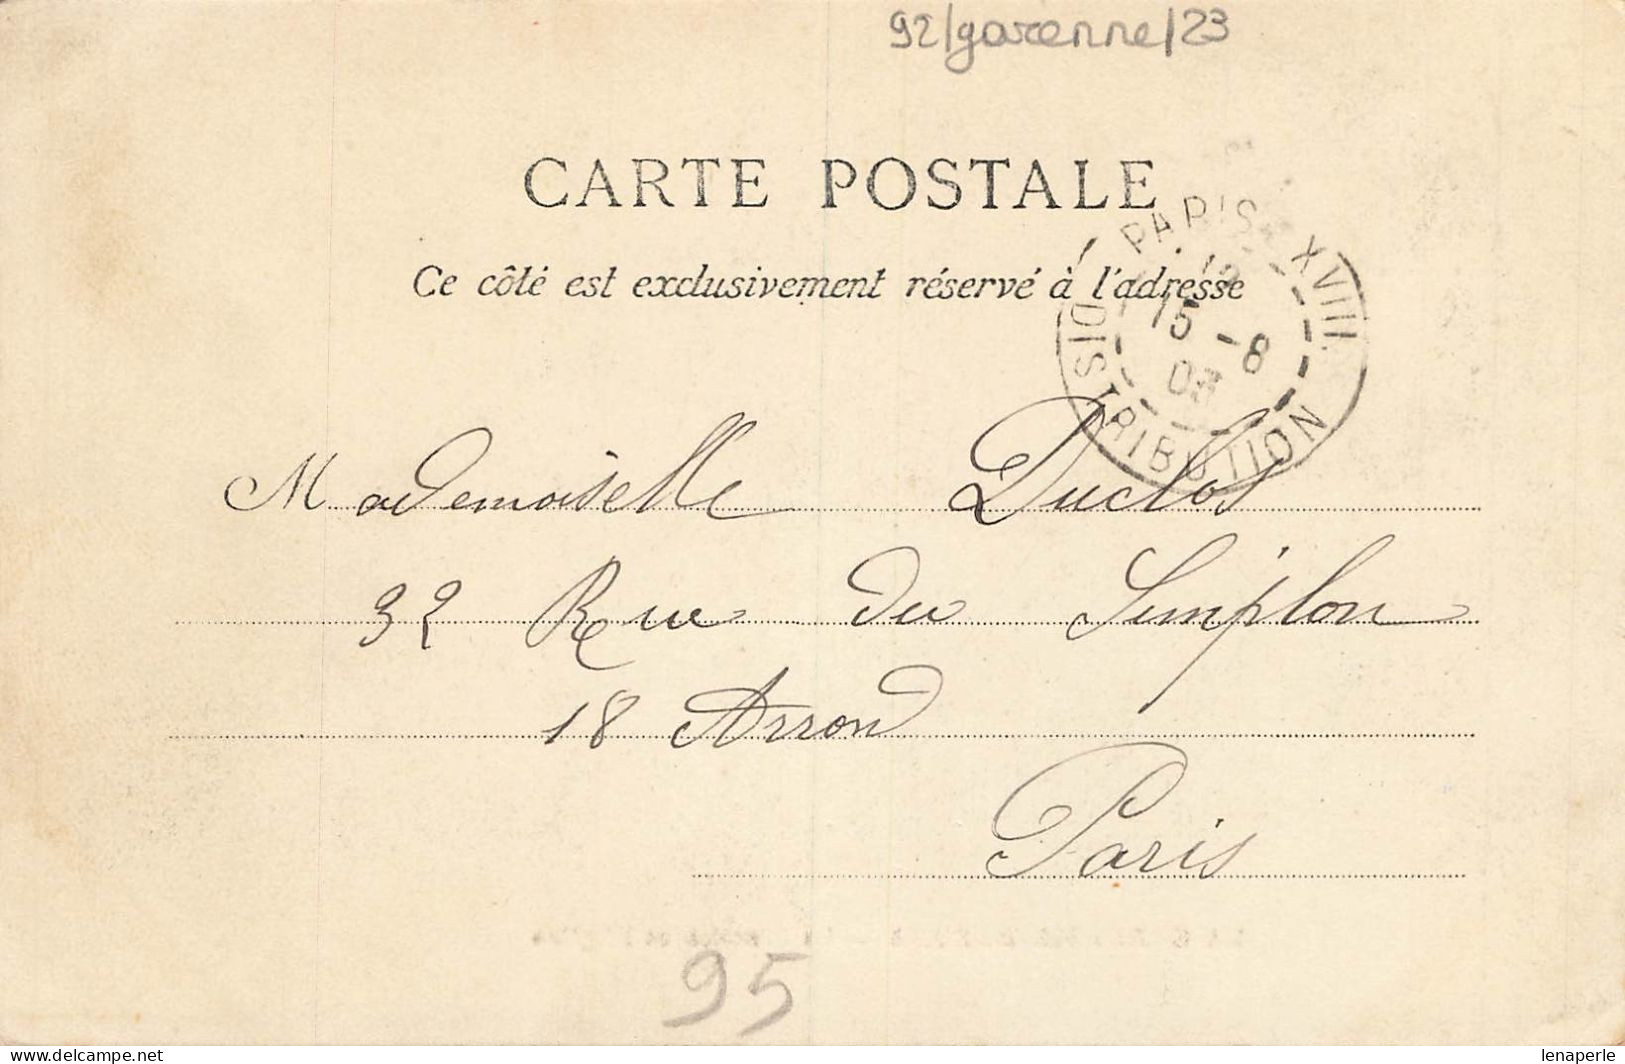 92/garenne/23
CARTE POSTALE
Ce côté est exclusivement réservé à l'adresse
PARIS XVIII
15 -8
DISTRIBUTION
Mademoiselle Duclos
32 Rue du Simplon
18 Arron
Paris
95
lenaperle